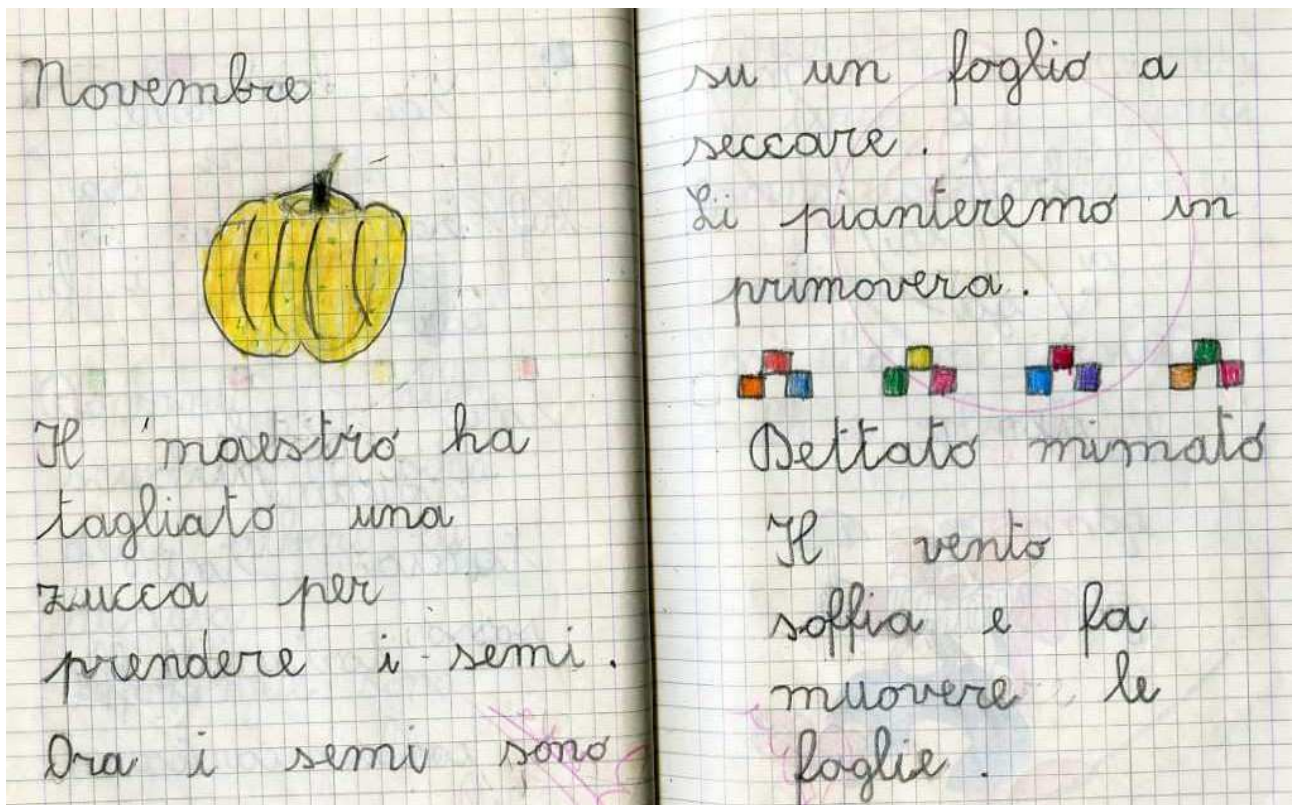 Novembre
Il maestro ha
tagliato una
zucca per
prendere i semi.
Ora i semi sono
su un foglio a
seccare.
Li pianteremo in
primavera.
Dettato mimato
Il vento
soffia e fa
muovere le
foglie.